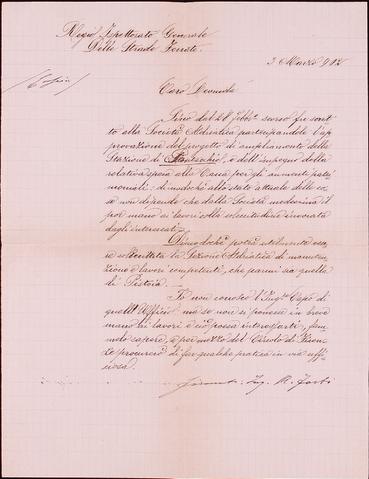 Regio Ispettorato Generale
Delle Strade Ferrate.
3 Marzo 902
(Copia)
Caro
Fino dal 28 Febb° scorso fu scrit-
to alla Società Adriatica partecipandole l'ap-
provazione del progetto di ampliamento della
Stazione di e dell'impegno della
relativa spesa alla Cassa per gli aumenti patri-
moniali: di modochè allo stato attuale delle co-
se non dipende che dalla Società medesima il
por mano ai lavori colla sollecitudine invocata
dagli interessati.
Dimodochè potrà utilmente esse-
re sollecitata la Sezione Adriatica di manuten-
zione e lavori competente, che parmi sia quella
di Pistoia.
Io non conosco l'Ing.re Capo di
quell'Ufficio ma se non si ponesse in breve
mano ai lavori e ciò possa interessarti, fam-
melo sapere, e per mezzo del Circolo di Firen-
ze procurerò di far qualche pratica in via uffi-
ciosa.
Ing. R.